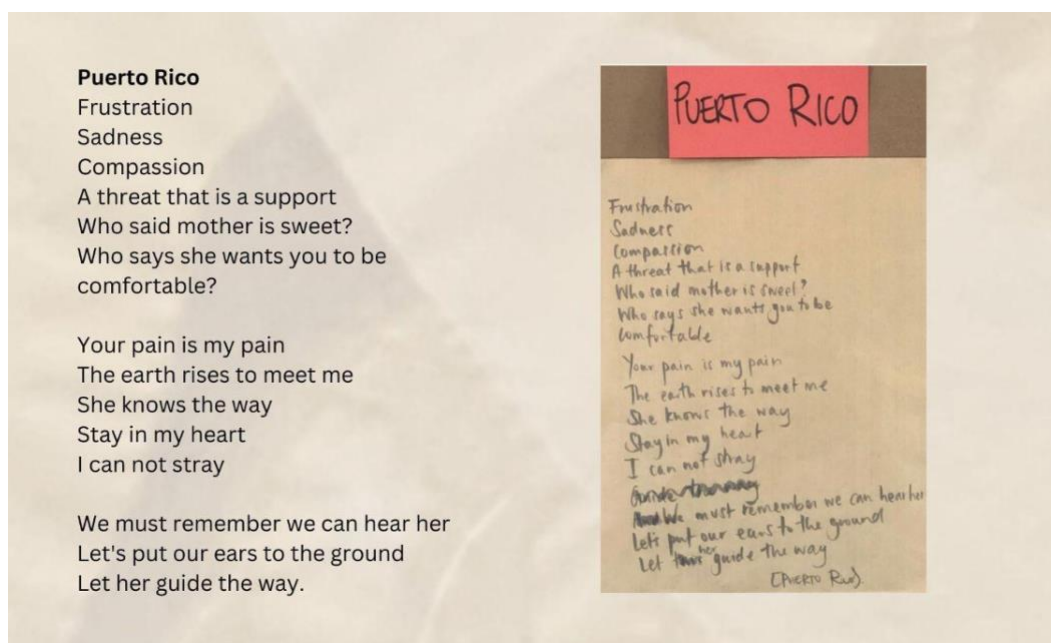 Puerto Rico
Frustration
Sadness
Compassion
A threat that is a support
Who said mother is sweet?
Who says she wants you to be
comfortable?
Your pain is my pain
The earth rises to meet me
She knows the way
Stay in my heart
I can not stray
We must remember we can hear her
Let's put our ears to the ground
Let her guide the way.
PUERTO RICO
Frustration
Sadness
Compassion
A threat that is a support
Who said mother is sweet?
Who says she wants you to be
comfortable
Your pain is my pain
The earth rises to meet me
She knows the way
Stay in my heart
I can not stray
We must remember we can hear her
Let's put our ears to the ground
Let her guide the way
(PUERTO RICO).